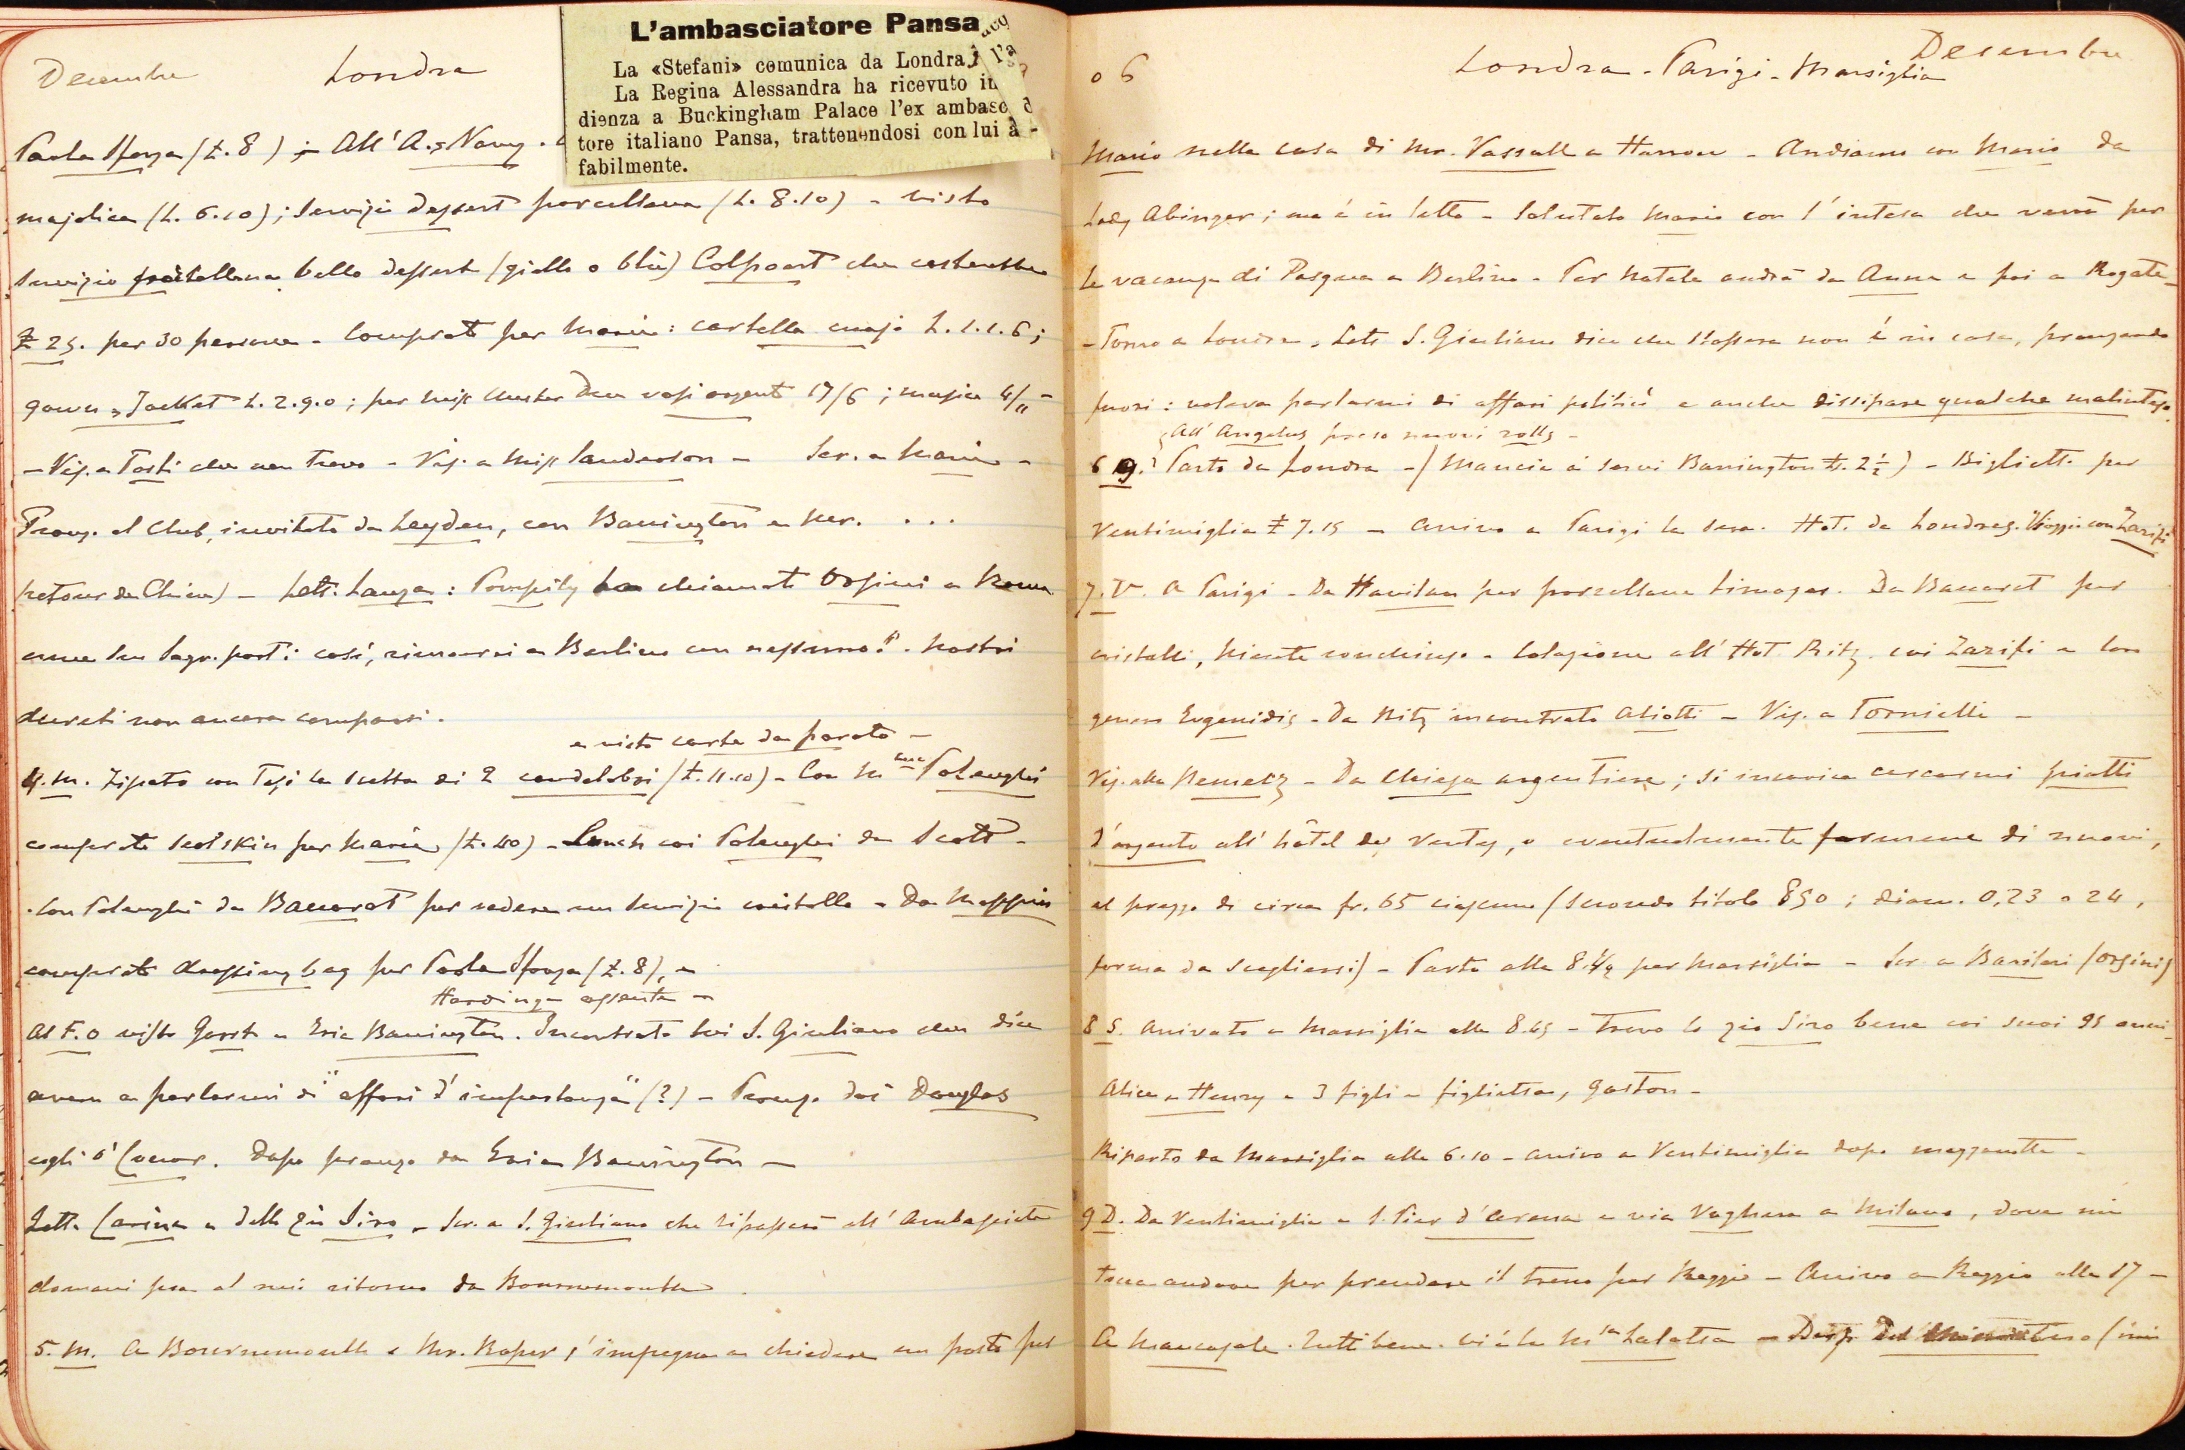 Decembre Londra
L'ambasciatore Pansa
La «Stefani» comunica da Londra,
La Regina Alessandra ha ricevuto in
dienza a Buckingham Palace l'ex ambasc
tore italiano Pansa, trattenendosi con lui a
fabilmente.
Paola Sforza (£. 8) ; All' A. & Navy.
majolica (L. 6.10); servizio dessert porcellana (L. 8.10) - visto
servizio bello dessert (giallo o blù) Colport che costerebbe
£ 25. per 30 persone - Comprato per Maria: cartella L. 1.1.6;
gown Jacket L. 2.9.0; per Miss due vasi argent 17/6; 4/11
- Vis. a Tosti che non trovo - Vis. a Miss Sanderson - Scr. a Maria -
Pranzo al Club, invitato da Leyden, con Barrington e Mr. ...
(retour de Chine) - Lett. Lanza: Pompily ha chiamato Orsini a Roma
come suo Segr. part: così, rimarrei a Berlino con nessuno! - Nostri
decreti non ancora comparsi.
e visto carte da parato -
4. M. con la scelta di 2 candelabri (£. 11.10) - Con Mme Polenghi
comprato sealskin per Maria (£. 40) - Lunch coi Polenghi da Scott -
- Con Polenghi da Baccarat per vedere un servizio cristallo - Da Mappin
comprato dressing bag per Paola Sforza (£. 8), e
Hardinge assente -
Al F.O visto Gorst e Eric Barrington. Incontrato lui S. Giuliano che dice
avere a parlarmi di "affari d'importanza" (?) - Pranzo dai Douglas
cogli O'Connor. Dopo pranzo da Eric Barrington -
Lett. Carina e dello zio Siro - Scr. a S. Giuliano che ripasserò all' Ambasciata
domani sera al mio ritorno da Bournemouth.
5. M. A Bournemouth e Mr. Roper s'impegna a chiedere un posto per
06 Londra - Parigi - Marsiglia Decembre
Mario nella casa di Mr. Vassall a Harrow - Andiamo con Mario da
Lady Abinger; ma è in letto - Salutato Mario con l'intesa che verrà per
le vacanze di Pasqua a Berlino - Per Natale andrà da Anna e poi a Rogate -
- Torno a Londra, Lett. S. Giuliano dice che stassera non è in casa, pranzando
fuori: voleva parlarmi di affari politici e anche dissipare qualche malinteso.
All' Angelus preso nuovi rolls -
6 G. Parto da Londra - (Mancia ai servi Barrington £. 2½) - Biglietto per
Ventimiglia £ 7.15 - Arrivo a Parigi la sera. Hot. de Londres. Viaggio con Zarifi
7. V. A Parigi - Da Havilan per porcellana Limoges. Da Baccarat per
cristalli, niente conchiuso - Colazione all' Hot. Ritz coi Zarifi e loro
genero Evgenidis - Da Ritz incontrato Aliotti - Vis. a Tornielli -
Vis. alla Nemetz - Da Chiesa argentiere; si incarica cercarmi piatti
d'argento all' hôtel des Ventes, o eventualmente farmene di nuovi,
al prezzo di circa fr. 65 ciascuno (secondo titolo 850; diam. 0,23 o 24,
forma da scegliersi) - Parto alle 8.¼ per Marsiglia - Scr. a Barilari (Orsini)
8 S. Arrivato a Marsiglia alle 8.45 - Trovo lo zio Siro bene coi suoi 95 anni -
Alice e Henry e 3 figli e figlietta, Gaston -
Riparto da Marsiglia alle 6.10 - arrivo a Ventimiglia dopo mezzanotte -
9 D. Da Ventimiglia a S. Pier d'Arena e via Voghera a Milano, dove mi
tocca andare per prendere il treno per Reggio - Arrivo a Reggio alle 17 -
A Mancasale. Tutti bene. Vi è la